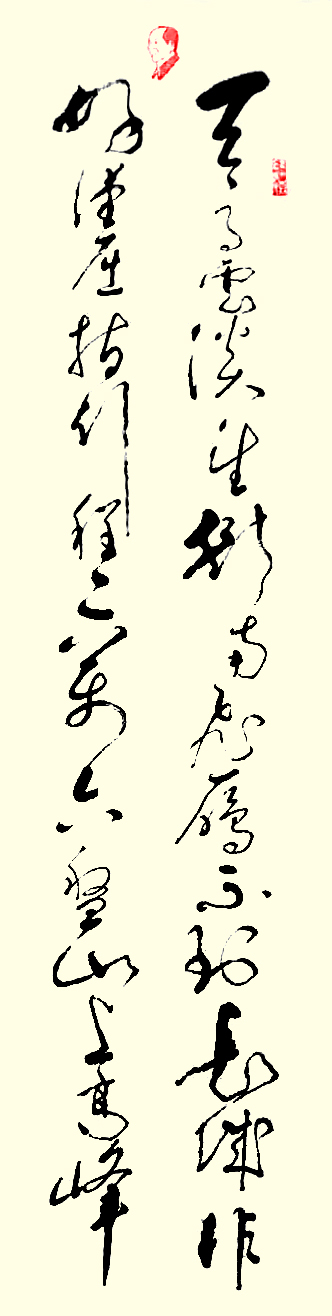 天高雲淡望斷南飛鴈不到長城非
好漢屈指行程二萬六盤山上高峰